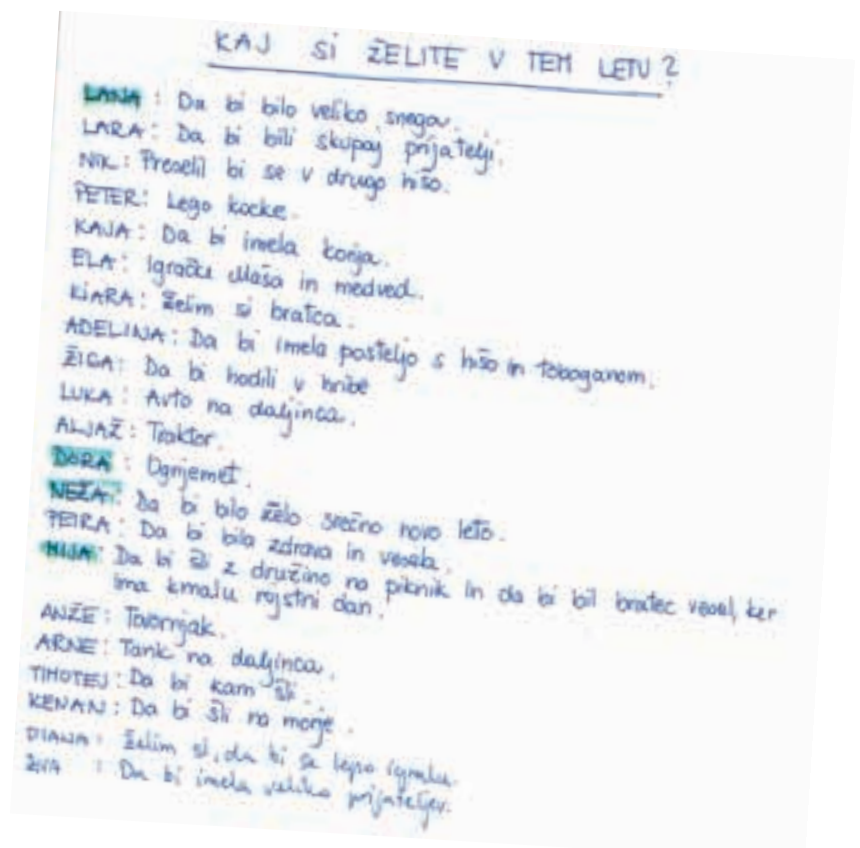 KAJ SI ŽELITE V TEM LETU?
LANA : Da bi bilo veliko snega.
LARA : Da bi bili skupaj prijatelji.
NIK : Preselil bi se v drugo hišo.
PETER : Lego kocke.
KAJA : Da bi imela konja.
ELA : Igračke Maša in medved.
KIARA : Želim si bratca.
ADELINA : Da bi imela posteljo s hišo in toboganom.
ŽIGA : Da bi hodili v hribe
LUKA : Avto na daljinca.
ALJAŽ : Traktor.
DORA : Ognjemet.
NEŽA : Da bi bilo zelo srečno novo leto.
PETRA : Da bi bila zdrava in vesela.
MIJA : Da bi šli z družino na piknik in da bi bil bratec vesel, ker
ima kmalu rojstni dan.
ANŽE : Tovornjak.
ARNE : Tank na daljinca.
TIMOTEJ : Da bi kam šli.
KENAN : Da bi šli na morje.
DIANA : Želim si, da bi se lepo igrali.
ŽIVA : Da bi imela veliko prijateljev.